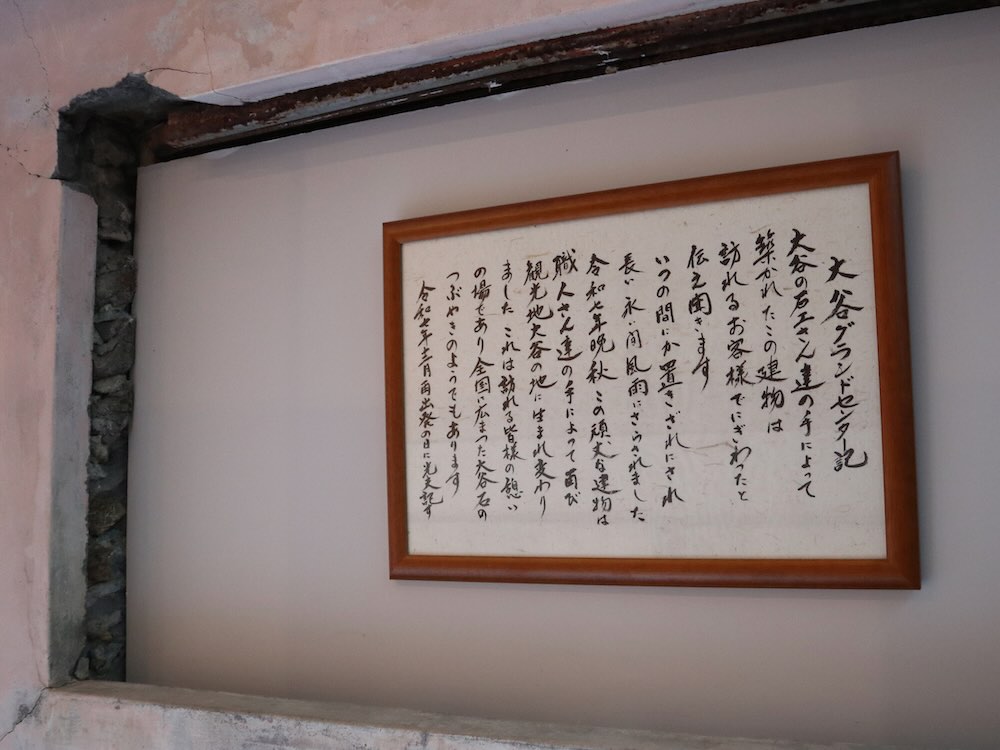 大谷グランドセンター記
大谷の石工さん達の手によって
築かれたこの建物は
訪れるお客様でにぎわったと
伝え聞きます
いつの間にか置きざれにされ
長い永い間風雨にさらされました
令和七年晩秋 この頑丈な建物は
職人さん達の手によって再び
観光地大谷の地に生まれ変わり
ました これは訪れる皆様の憩い
の場であり全国に広まった大谷石の
つぶやきのようでもあります
令和七年十二月再出発の日に光夫記す